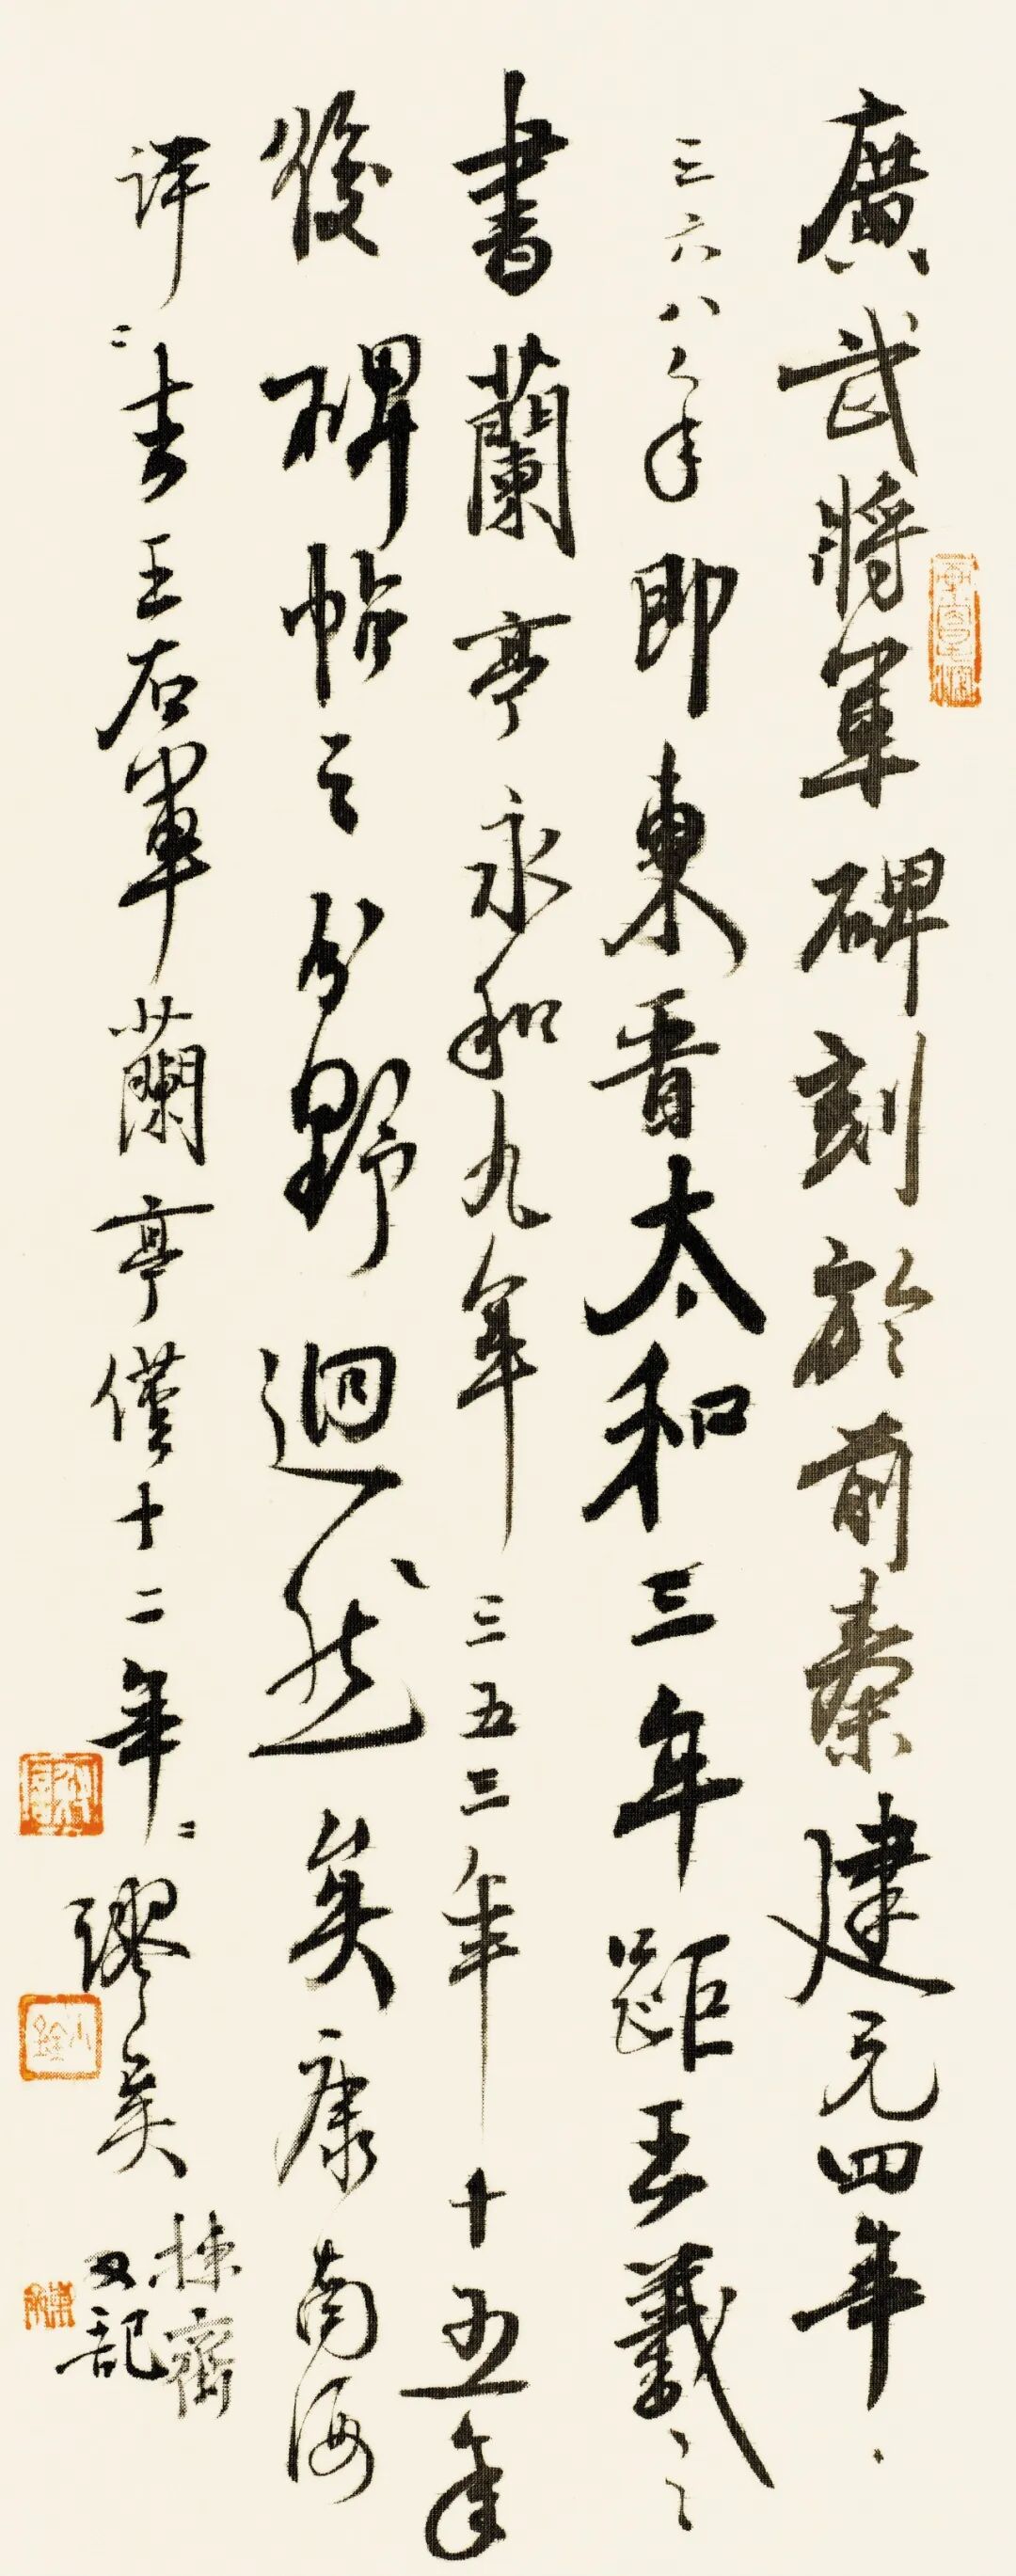 廣武將軍碑刻於前秦建元四年
三六八年即東晋太和三年距王羲之
書蘭亭永和九年三五三年十五年
後碑帖之分野迥然矣康南海
謂去王右軍蘭亭僅十二年謬矣
齋又記